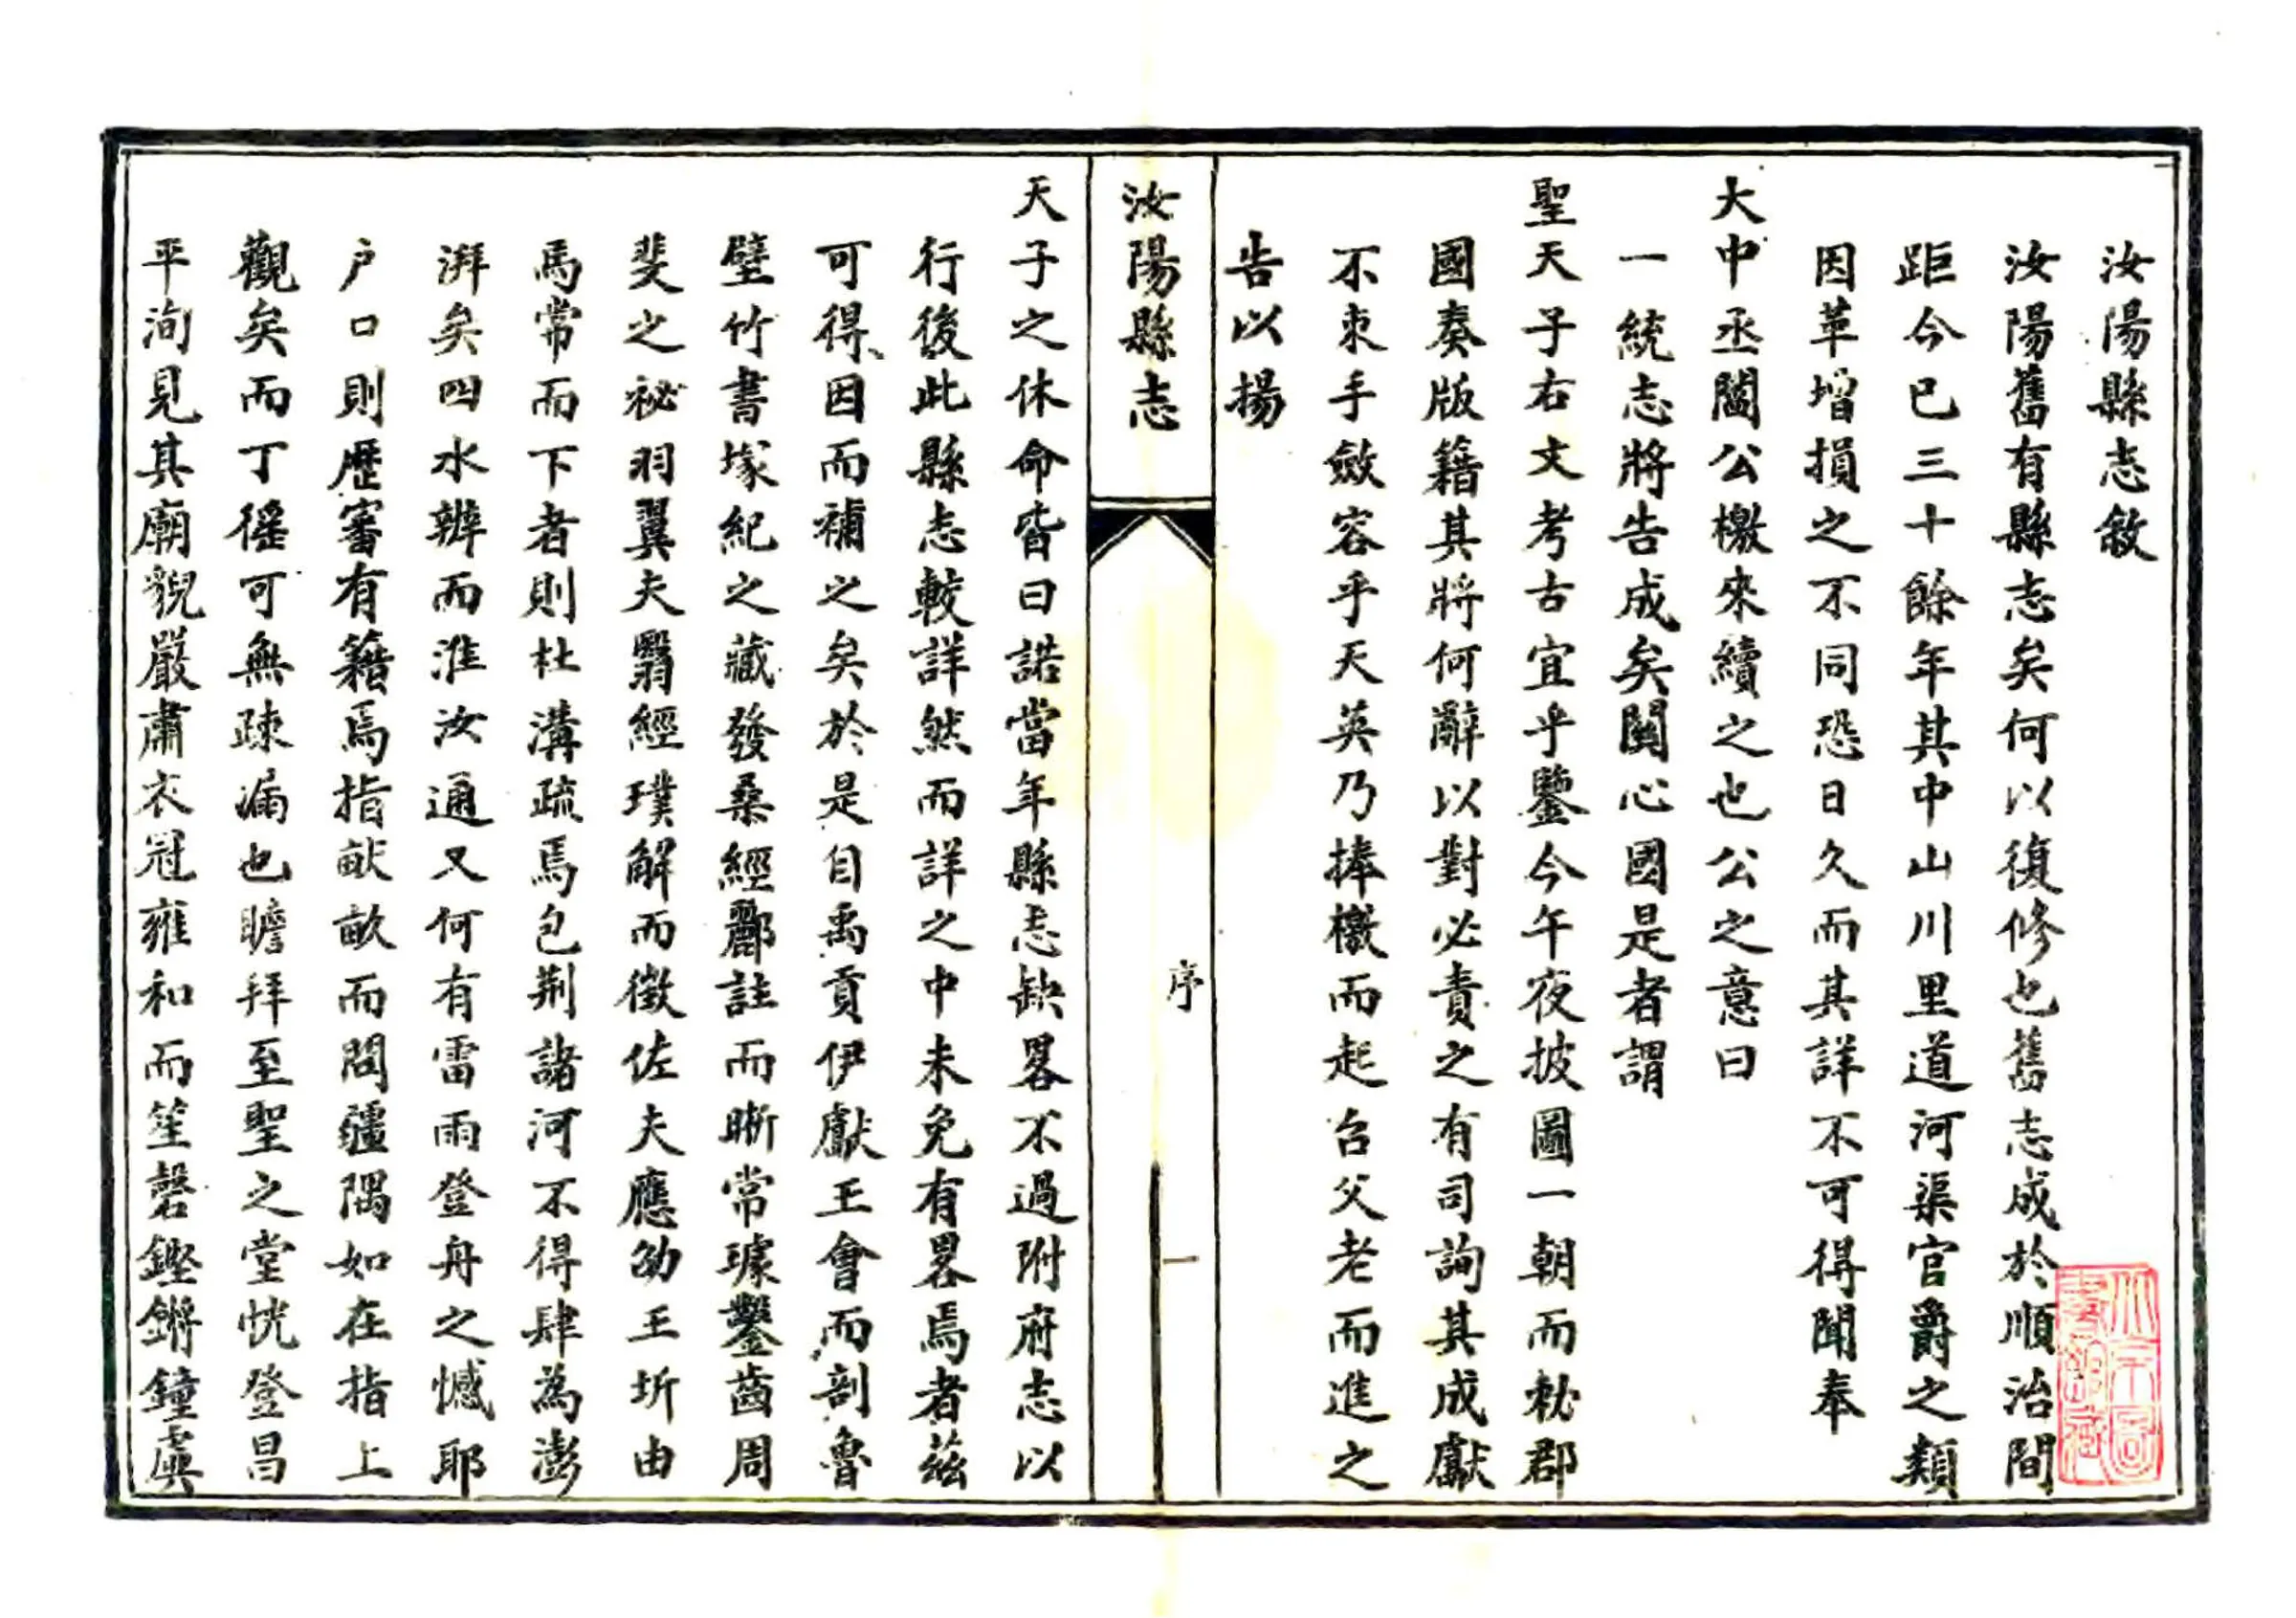 汝陽縣志敘
汝陽舊有縣志矣何以復修也舊志成於順治間
距今已三十餘年其中山川里道河渠官爵之類
因革增損之不同恐日久而其詳不可得聞奉
大中丞閻公檄來續之也公之意曰
一統志將告成矣關心國是者謂
聖天子右文考古宜乎鑒今午夜披圖一朝而秘郡
國奏版籍其將何辭以對必責之有司詢其成獻
不朿手斂容乎天英乃捧檄而起召父老而進之
告以揚
汝陽縣志
序
一
天子之休命皆曰諾當年縣志缺畧不過附府志以
行後此縣志較詳然而詳之中未免有畧焉者茲
可得因而補之矣於是自禹貢伊獻王會而剖魯
壁竹書塚紀之藏發桑經酈註而晰常璩鑿齒周
斐之祕羽翼夫翳經璞解而徵佐夫應劭王圻由
馬常而下者則杜溝疏焉包荆諸河不得肆為澎
湃矣四水辨而淮汝通又何有雷雨登舟之憾耶
户口則歷審有籍焉指畝畝而問疆隅如在指上
觀矣而丁徭可無疎漏也瞻拜至聖之堂恍登昌
平洵見其廟貌嚴肅衣冠雍和而笙磬鏗鏘鐘虡